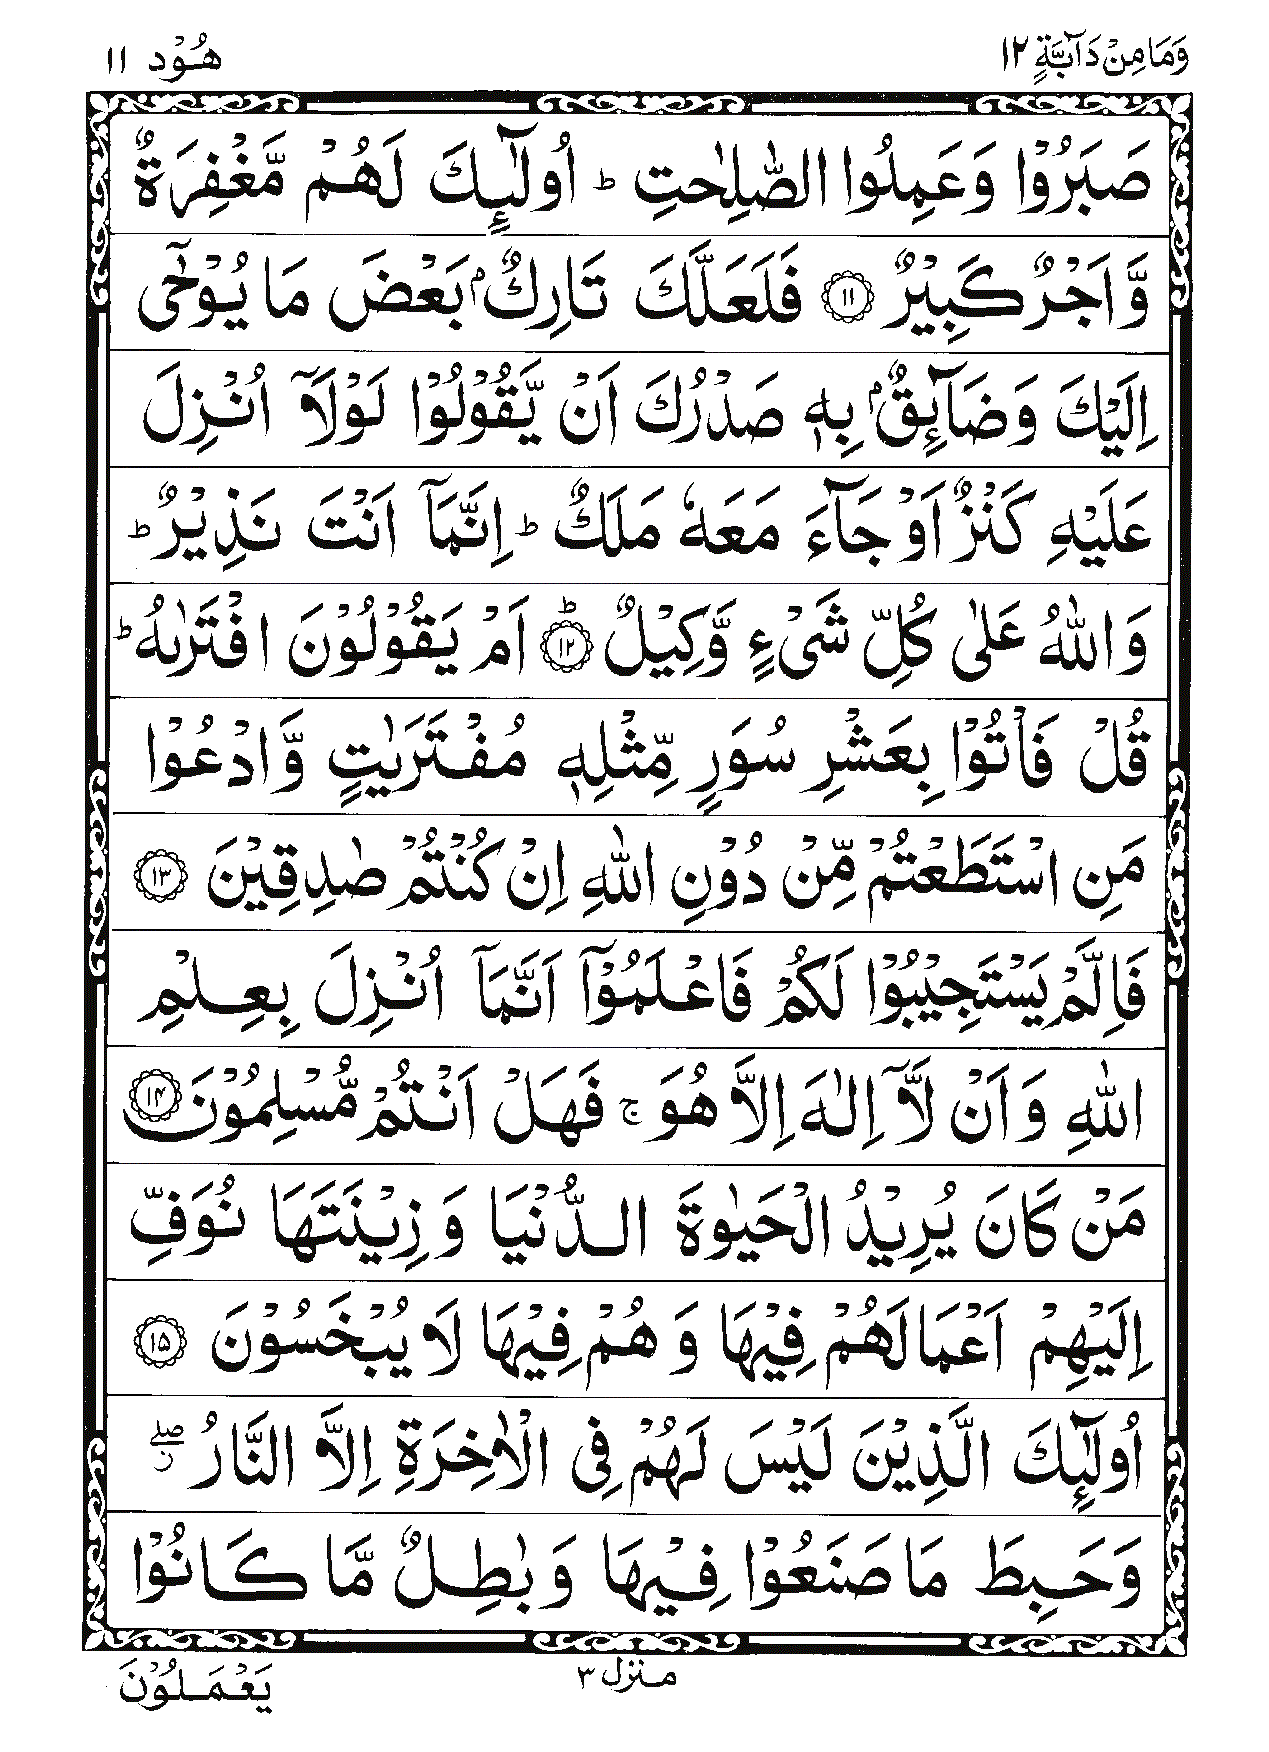 وَمَا مِنْ دَآبَّةٍ ١٢
هُوْد ١١
صَبَرُوْا وَعَمِلُوا الصّٰلِحٰتِ ؕ اُولٰٓئِكَ لَهُمْ مَّغْفِرَةٌ
وَّاَجْرٌ كَبِيْرٌ ۝١١ فَلَعَلَّكَ تَارِكٌۢ بَعْضَ مَا يُوْحٰٓى
اِلَيْكَ وَضَآئِقٌۢ بِهٖ صَدْرُكَ اَنْ يَّقُوْلُوْا لَوْلَاۤ اُنْزِلَ
عَلَيْهِ كَنْزٌ اَوْ جَآءَ مَعَهٗ مَلَكٌ ؕ اِنَّمَاۤ اَنْتَ نَذِيْرٌ ؕ
وَاللّٰهُ عَلٰى كُلِّ شَىْءٍ وَّكِيْلٌ ؕ۝١٢ اَمْ يَقُوْلُوْنَ افْتَرٰىهُ ؕ
قُلْ فَاْتُوْا بِعَشْرِ سُوَرٍ مِّثْلِهٖ مُفْتَرَيٰتٍ وَّادْعُوْا
مَنِ اسْتَطَعْتُمْ مِّنْ دُوْنِ اللّٰهِ اِنْ كُنْتُمْ صٰدِقِيْنَ ۝١٣
فَاِلَّمْ يَسْتَجِيْبُوْا لَكُمْ فَاعْلَمُوْۤا اَنَّمَاۤ اُنْزِلَ بِعِلْمِ
اللّٰهِ وَاَنْ لَّاۤ اِلٰهَ اِلَّا هُوَ ۚ فَهَلْ اَنْتُمْ مُّسْلِمُوْنَ ۝١٤
مَنْ كَانَ يُرِيْدُ الْحَيٰوةَ الدُّنْيَا وَزِيْنَتَهَا نُوَفِّ
اِلَيْهِمْ اَعْمَالَهُمْ فِيْهَا وَهُمْ فِيْهَا لَا يُبْخَسُوْنَ ۝١٥
اُولٰٓئِكَ الَّذِيْنَ لَيْسَ لَهُمْ فِى الْاٰخِرَةِ اِلَّا النَّارُ ۖ
وَحَبِطَ مَا صَنَعُوْا فِيْهَا وَبٰطِلٌ مَّا كَانُوْا
منزل ٣
يَعْمَلُوْنَ